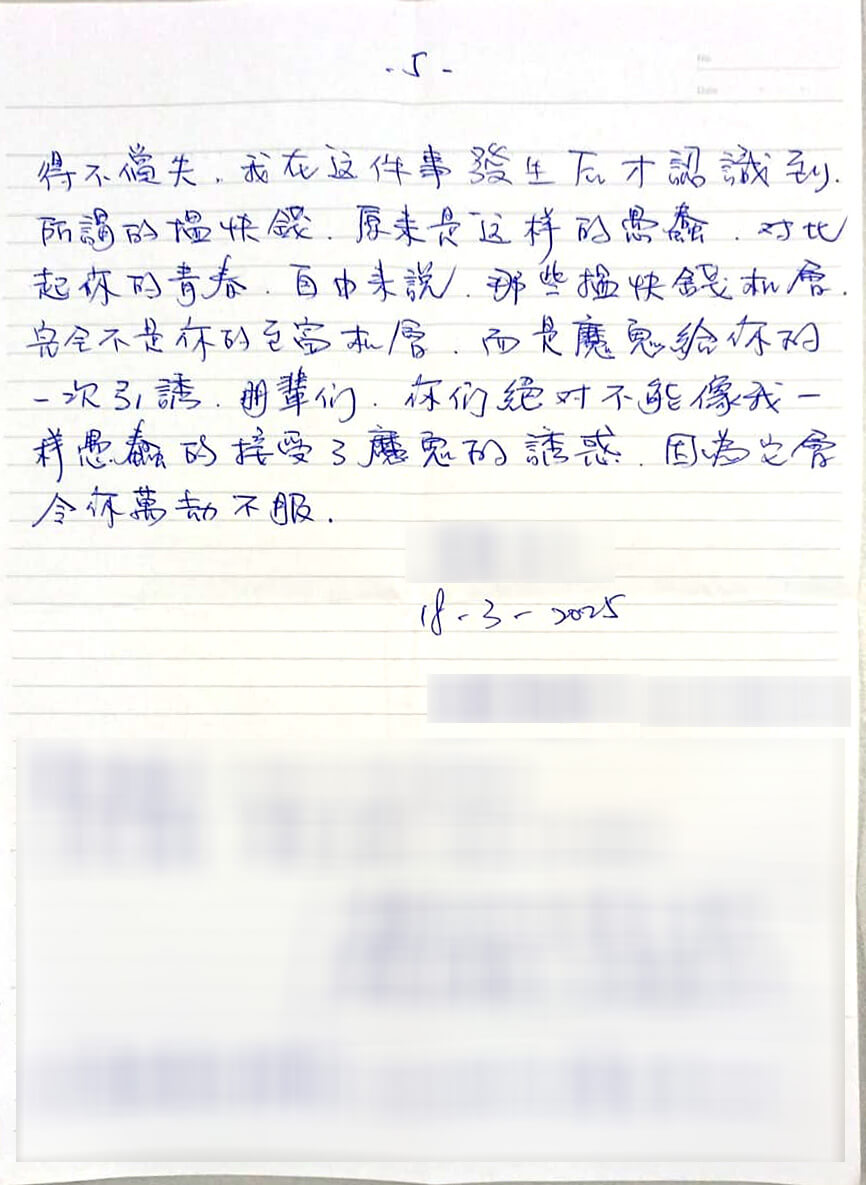 -5-
No.
Date
得不償失．我在这件事發生后才認識到．
所謂的搵快錢．原来是这样的愚蠢．对比
起你的青春．自由来説．那些搵快錢机會．
完全不是你的至富机會．而是魔鬼给你的
一次引誘．朋輩们．你们绝对不能像我一
样愚蠢的接受了魔鬼的誘惑．因為它會
令你萬劫不服．
18-3-2025